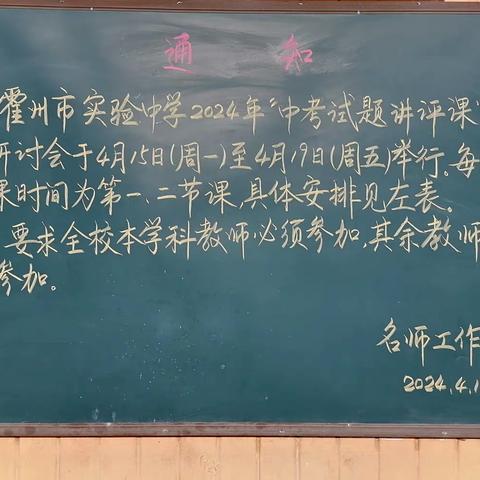 通 知
霍州市实验中学2024年"中考试题讲评课"
研讨会于4月15日(周一)至4月19日(周五)举行。每
课时间为第一、二节课,具体安排见左表。
要求全校本学科教师必须参加,其余教师
参加。
名师工作
2024.4.1